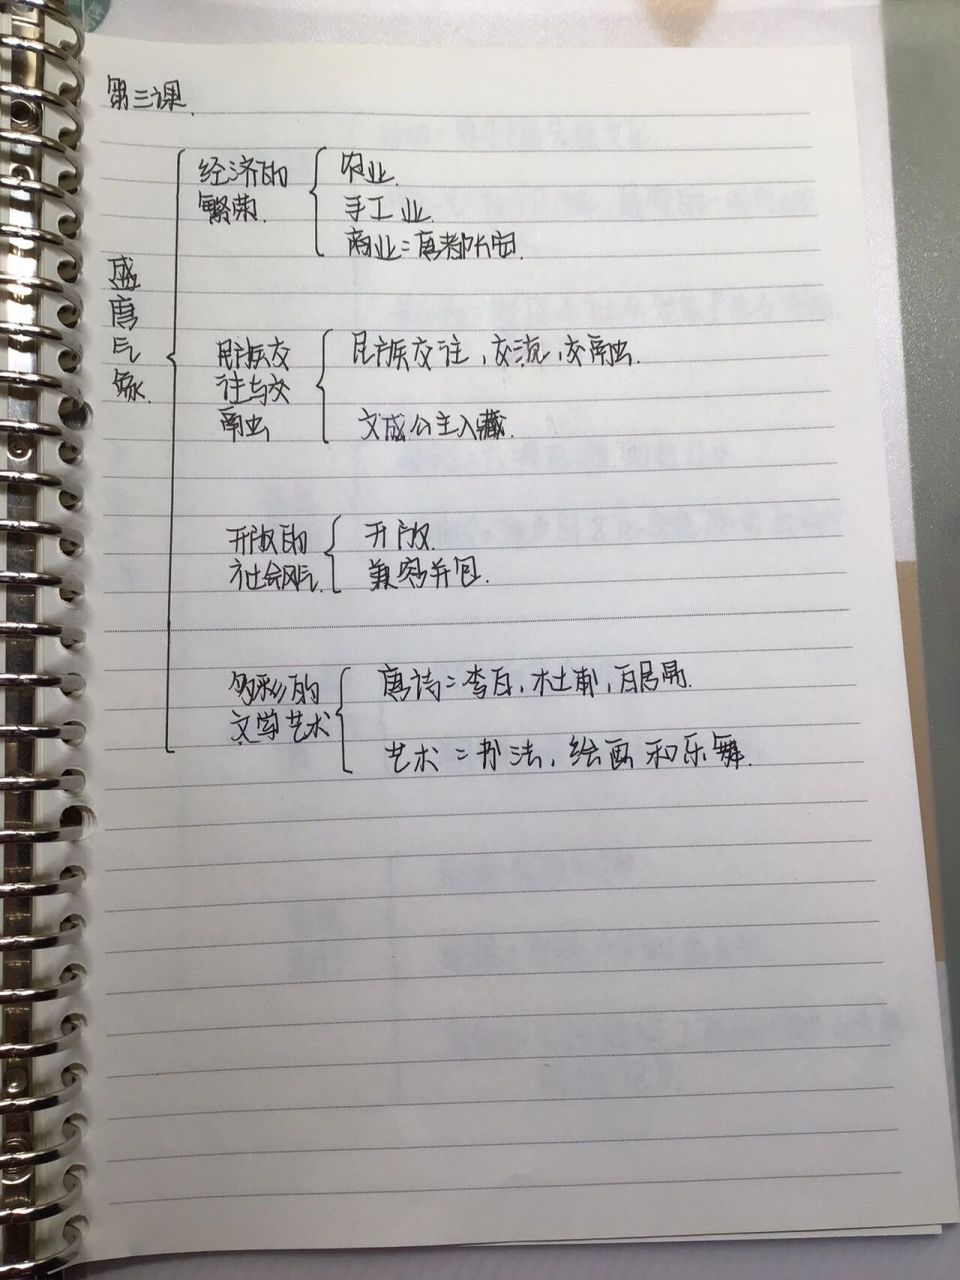 第三课
盛唐气象
经济的
繁荣
农业
手工业
商业：唐都长安
民族交
往与交
融
民族交往，交流，交融
文成公主入藏
开放的
社会风气
开放
兼容并包
多彩的
文学艺术
唐诗：李白，杜甫，白居易
艺术：书法，绘画和乐舞